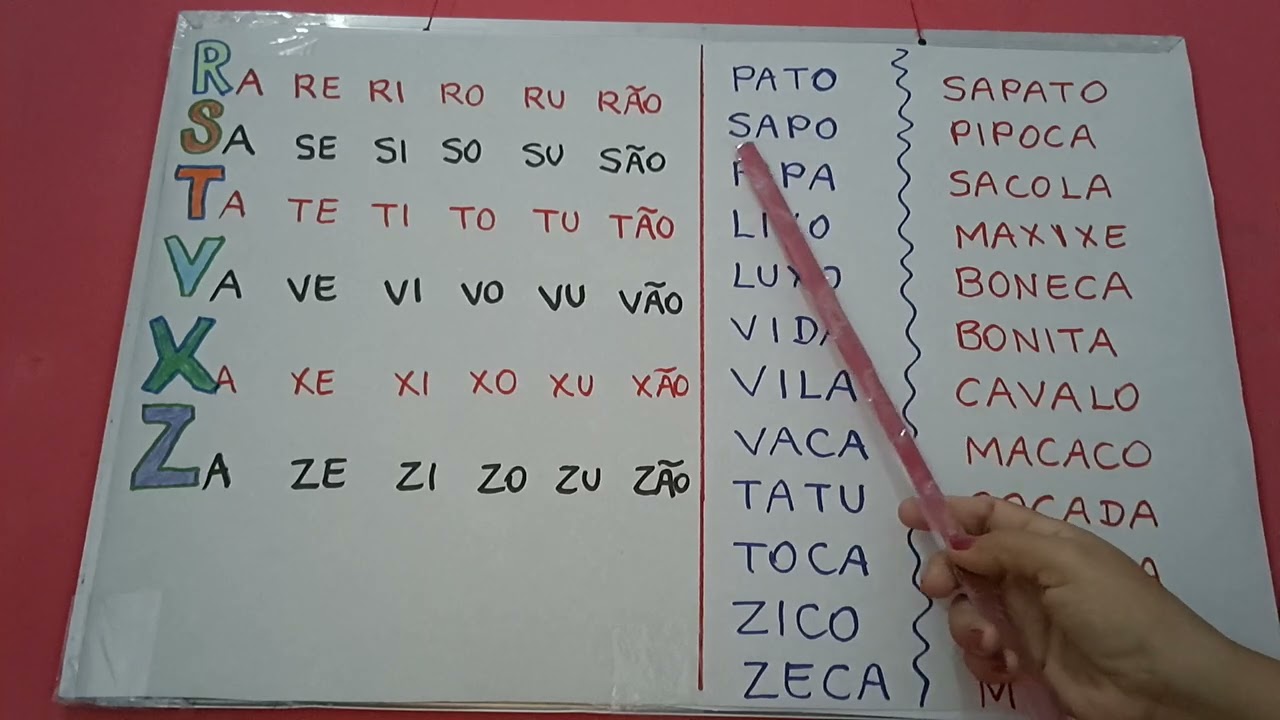 RA RE RI RO RU RÃO
SA SE SI SO SU SÃO
TA TE TI TO TU TÃO
VA VE VI VO VU VÃO
XA XE XI XO XU XÃO
ZA ZE ZI ZO ZU ZÃO
PATO
SAPO
LUXO
VIDA
VILA
VACA
TATU
TOCA
ZICO
ZECA
SAPATO
PIPOCA
SACOLA
MAXIXE
BONECA
BONITA
CAVALO
MACACO